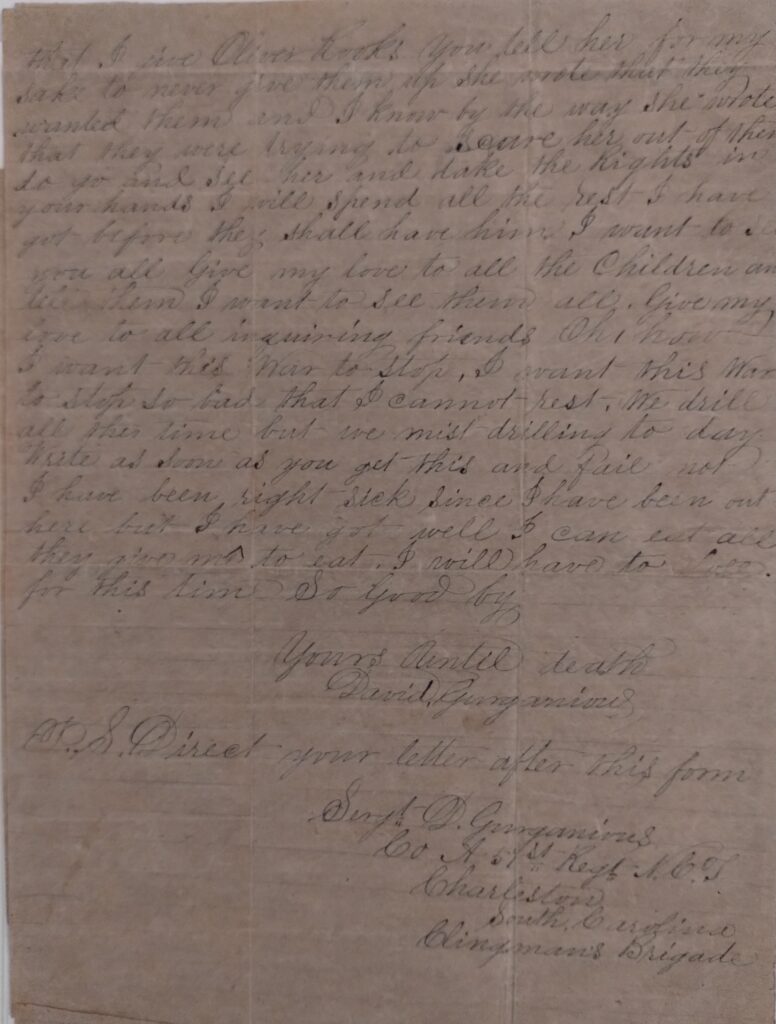 that I give Oliver Hooks You tell her for my
sake to never give them up she wrote that they
wanted them and I know by the way she wrote
that they were trying to Scare her out of them
do go and see her and take the Rights in
your hands I will spend all the rest I have
got before they shall have him I want to see
you all Give my love to all the Children an
tell them I want to see them all. Give my
love to all inquiring friends Oh! how
I want this War to stop, I want this War
to stop so bad that I cannot rest. We drill
all the time but we mist drilling to day
Write as soon as you get this and fail not
I have been right sick since I have been out
here but I have got well I can eat all
they give me to eat. I will have to
for this time So Good by
Yours Until death
David, Gurganious
P. S. Direct your letter after this form
Sergt D. Gurganious
Co A 51st Regt N. C. T
Charleston
South, Carolina
Clingman's Brigade